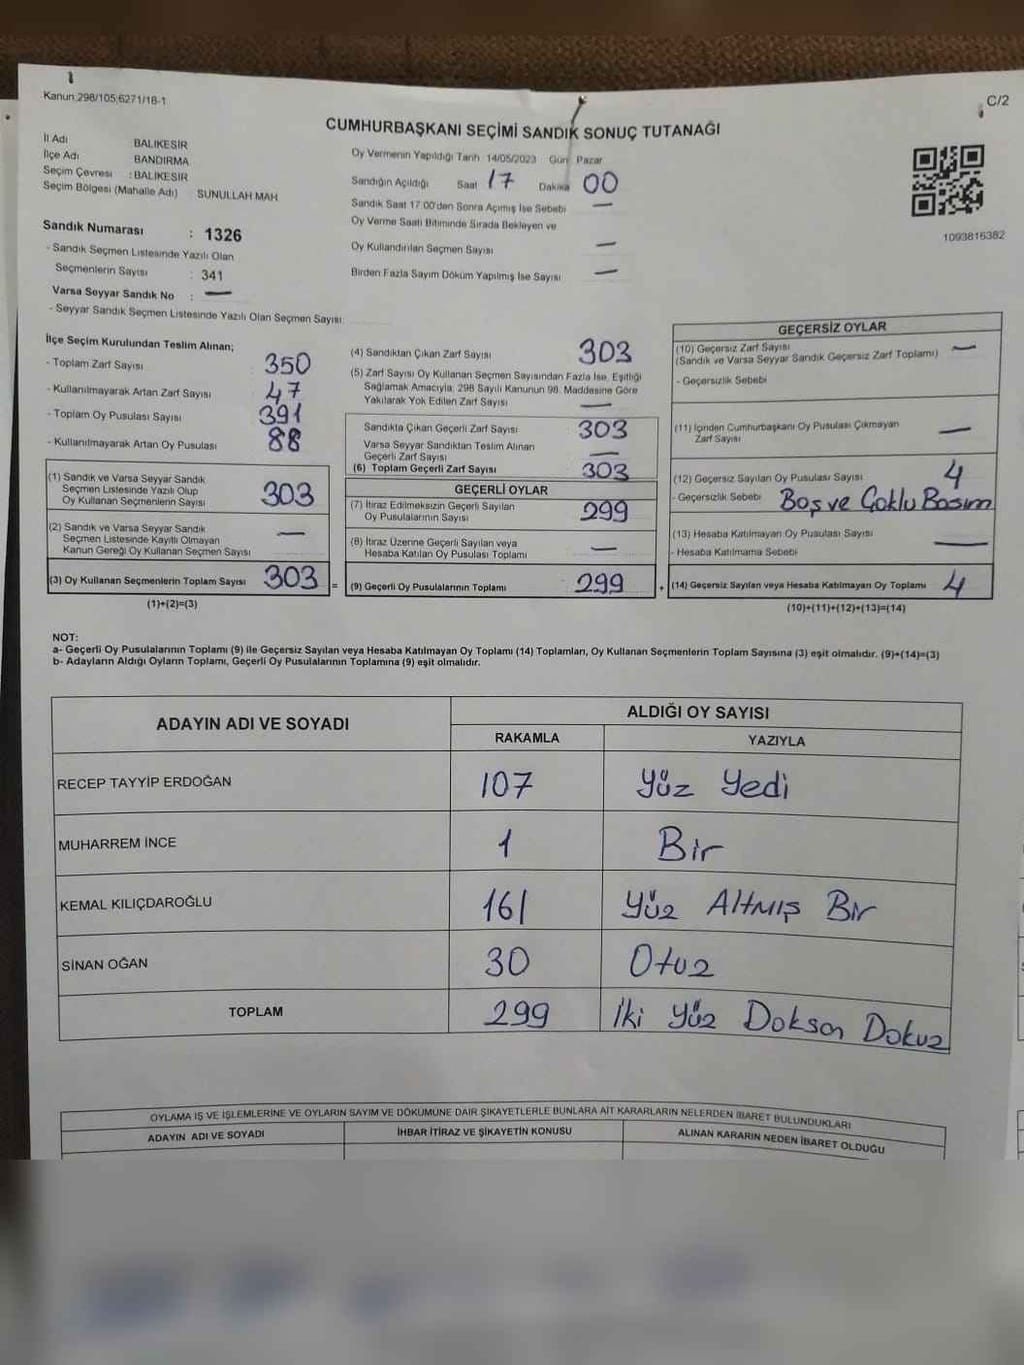 Kanun 298/105;6271/18-1
C/2
CUMHURBAŞKANI SEÇİMİ SANDIK SONUÇ TUTANAĞI
İl Adı BALIKESİR
İlçe Adı BANDIRMA
Seçim Çevresi : BALIKESİR
Seçim Bölgesi (Mahalle Adı) SUNULLAH MAH
Sandık Numarası : 1326
- Sandık Seçmen Listesinde Yazılı Olan
Seçmenlerin Sayısı : 341
Varsa Seyyar Sandık No : —
- Seyyar Sandık Seçmen Listesinde Yazılı Olan Seçmen Sayısı
Oy Vermenin Yapıldığı Tarih 14/05/2023 Gün Pazar
Sandığın Açıldığı Saat 17 Dakika 00
Sandık Saat 17.00'den Sonra Açımış İse Sebebi —
Oy Verme Saati Bitiminde Sırada Bekleyen ve
Oy Kullandırılan Seçmen Sayısı —
Birden Fazla Sayım Döküm Yapılmış İse Sayısı —
1093816382
İlçe Seçim Kurulundan Teslim Alınan;
- Toplam Zarf Sayısı 350
- Kullanılmayarak Artan Zarf Sayısı 47
- Toplam Oy Pusulası Sayısı 391
- Kullanılmayarak Artan Oy Pusulası 88
(1) Sandık ve Varsa Seyyar Sandık
Seçmen Listesinde Yazılı Olup
Oy Kullanan Seçmenlerin Sayısı 303
(2) Sandık ve Varsa Seyyar Sandık
Seçmen Listesinde Kayıtlı Olmayan
Kanun Gereği Oy Kullanan Seçmen Sayısı —
(3) Oy Kullanan Seçmenlerin Toplam Sayısı 303 =
(1)+(2)=(3)
(4) Sandıktan Çıkan Zarf Sayısı 303
(5) Zarf Sayısı Oy Kullanan Seçmen Sayısından Fazla İse, Eşitliği
Sağlamak Amacıyla, 298 Sayılı Kanunun 98. Maddesine Göre
Yakılarak Yok Edilen Zarf Sayısı —
Sandıkta Çıkan Geçerli Zarf Sayısı 303
Varsa Seyyar Sandıktan Teslim Alınan
Geçerli Zarf Sayısı —
(6) Toplam Geçerli Zarf Sayısı 303
GEÇERLİ OYLAR
(7) İtiraz Edilmeksizin Geçerli Sayılan
Oy Pusulalarının Sayısı 299
(8) İtiraz Üzerine Geçerli Sayılan veya
Hesaba Katılan Oy Pusulası Toplamı —
(9) Geçerli Oy Pusulalarının Toplamı 299 +
GEÇERSİZ OYLAR
(10) Geçersiz Zarf Sayısı —
(Sandık ve Varsa Seyyar Sandık Geçersiz Zarf Toplamı)
- Geçersizlik Sebebi
(11) İçinden Cumhurbaşkanı Oy Pusulası Çıkmayan
Zarf Sayısı —
(12) Geçersiz Sayılan Oy Pusulası Sayısı 4
- Geçersizlik Sebebi Boş ve Çoklu Basım
(13) Hesaba Katılmayan Oy Pusulası Sayısı —
- Hesaba Katılmama Sebebi
(14) Geçersiz Sayılan veya Hesaba Katılmayan Oy Toplamı 4
(10)+(11)+(12)+(13)=(14)
NOT:
a- Geçerli Oy Pusulalarının Toplamı (9) ile Geçersiz Sayılan veya Hesaba Katılmayan Oy Toplamı (14) Toplamları, Oy Kullanan Seçmenlerin Toplam Sayısına (3) eşit olmalıdır. (9)+(14)=(3)
b- Adayların Aldığı Oyların Toplamı, Geçerli Oy Pusulalarının Toplamına (9) eşit olmalıdır.
ADAYIN ADI VE SOYADI
ALDIĞI OY SAYISI
RAKAMLA YAZIYLA
RECEP TAYYİP ERDOĞAN 107 Yüz Yedi
MUHARREM İNCE 1 Bir
KEMAL KILIÇDAROĞLU 161 Yüz Altmış Bir
SİNAN OĞAN 30 Otuz
TOPLAM 299 İki Yüz Doksan Dokuz
OYLAMA İŞ VE İŞLEMLERİNE VE OYLARIN SAYIM VE DÖKÜMÜNE DAİR ŞİKAYETLERLE BUNLARA AİT KARARLARIN NELERDEN İBARET BULUNDUKLARI
ADAYIN ADI VE SOYADI
İHBAR İTİRAZ VE ŞİKAYETİN KONUSU
ALINAN KARARIN NEDEN İBARET OLDUĞU